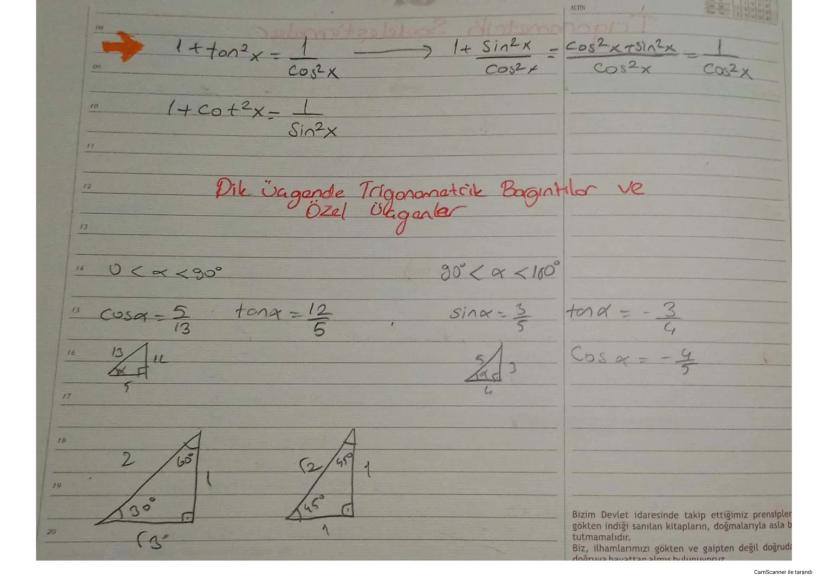 ALTIN
1+tan²x = 1/cos²x → 1 + sin²x/cos²x = cos²x+sin²x/cos²x = 1/cos²x
09
10
1+cot²x = 1/sin²x
11
12
Dik üçgende Trigonometrik Bagıntılar ve
Özel Üçgenler
13
14
0 < α < 90°
90° < α < 180°
15
cosα = 5/13 tanα = 12/5
sinα = 3/5 tanα = - 3/4
16
13 12
α
5
5 3
α
4
Cos α = - 4/5
17
18
2 60° 1
30°
√3
√2 45° 1
45°
1
19
20
Bizim Devlet idaresinde takip ettiğimiz prensipler
gökten indiği sanılan kitapların, doğmalarıyla asla b
tutmamalıdır.
Biz, ilhamlarımızı gökten ve gaipten değil doğrud
doğruya hayattan almış bulunuyoruz
CamScanner ile tarandı